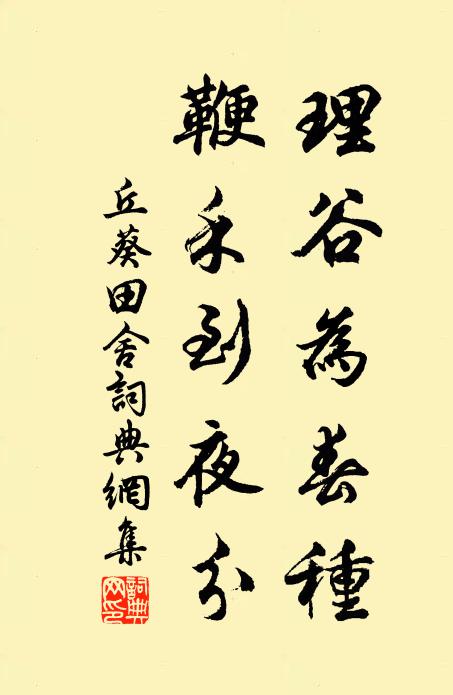 理谷為春種
鞭禾到夜分
丘葵田舍詞典網集
詞典網印